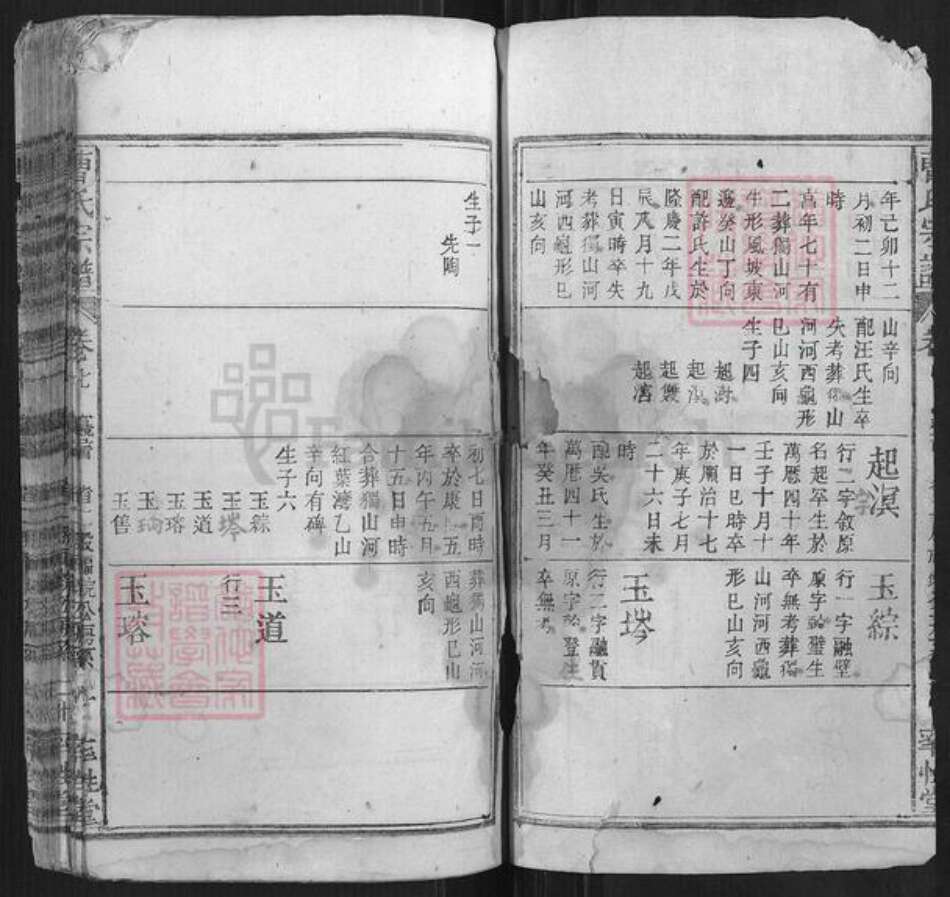 年己卯十二
月初二日申
時
享年七十有
二葬獨山河
生形風坡東
邊癸山丁向
配許氏生於
隆慶二年戊
辰八月十九
日寅時卒失
考葬獨山河
河西龜形巳
山亥向
生子一
先陶
山辛向
配汪氏生卒
失考葬獨山
河河西龜形
巳山亥向
生子四
起
起
起
起
起溟
行二字敘原
名起罕生於
萬曆四十年
壬子十月十
一日巳時卒
於順治十七
年庚子七月
二十六日未
時
配吳氏生於
萬曆四十一
年癸丑三月
初七日酉時
卒於康熙五
年丙午五月
十五日申時
合葬獨山河
紅葉灣乙山
辛向有碑
生子六
玉綜
玉
玉道
玉瑢
玉
玉
玉綜
行一字融壁
原字 生
卒無考葬獨
山河河西龜
形巳山亥向
玉
行二字融貫
原字 登生
卒無考
葬獨山河河
西龜形巳山
亥向
玉道
行三
玉瑢
曹氏宗譜